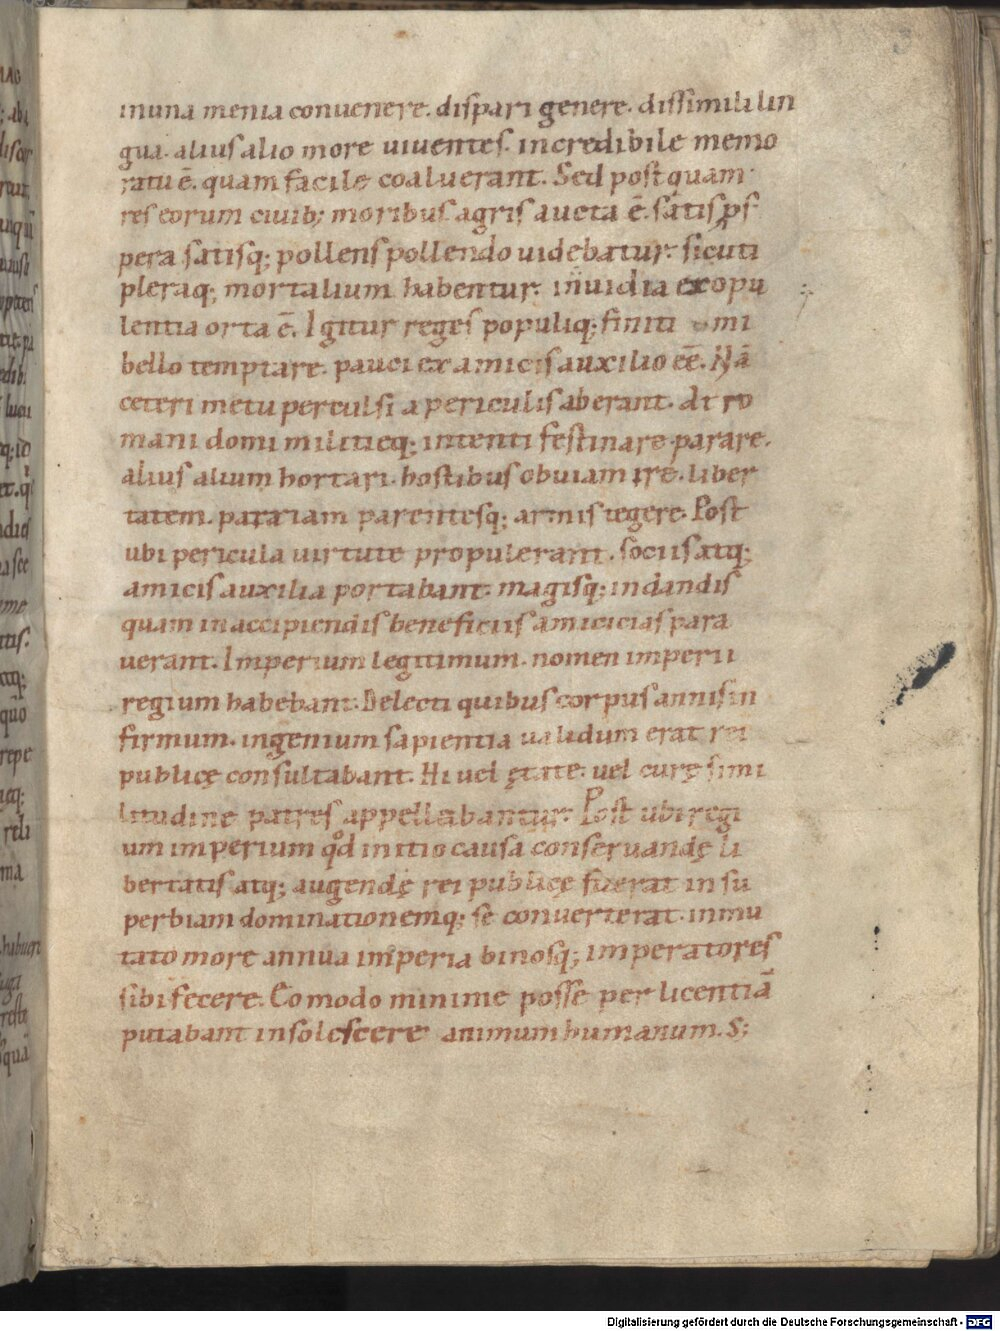 inuna menia conuenere. dispari genere. dissimili lin
gua. alius alio more uiuentes. incredibile memo
ratu ē. quam facile coaluerant. Sed postquam
res eorum ciuib; moribus agris aucta ē. satis ꝓs
pera satisq; pollens pollendo uidebatur. sicuti
pleraq; mortalium habentur. inuidia ex opu
lentia orta ē. Igitur reges populiq; finiti mi
bello temptare. pauci ex amicis auxilio eē. Nā
ceteri metu perculsi a periculis aberant. At ro
mani domi militieq; intenti festinare. parare.
alius alium hortari. hostibus obuiam ire. liber
tatem. patariam parentesq; armis tegere. Post
ubi pericula uirtute propulerant. sociis atq;
amicis auxilia portabant. magisq; in dandis
quam in accipiendis beneficiis amicicias para
uerant. Imperium legitimum. nomen imperii
regium habebant. Delecti quibus corpus annis in
firmum. ingenium sapientia ualidum erat rei
publicę consultabant. Hi uel ętate. uel curę simi
litudine patres appellabantur. Post ubi regi
um imperium qd initio causa conseruandę li
bertatis atq; augendę rei publicę fuerat in su
perbiam dominationemq; se conuerterat. inmu
tato more annua imperia binosq; imperatores
sibi fecere. Eo modo minime posse per licentiā
putabant insolescere animum humanum. S;
Digitalisierung gefördert durch die Deutsche Forschungsgemeinschaft - DFG